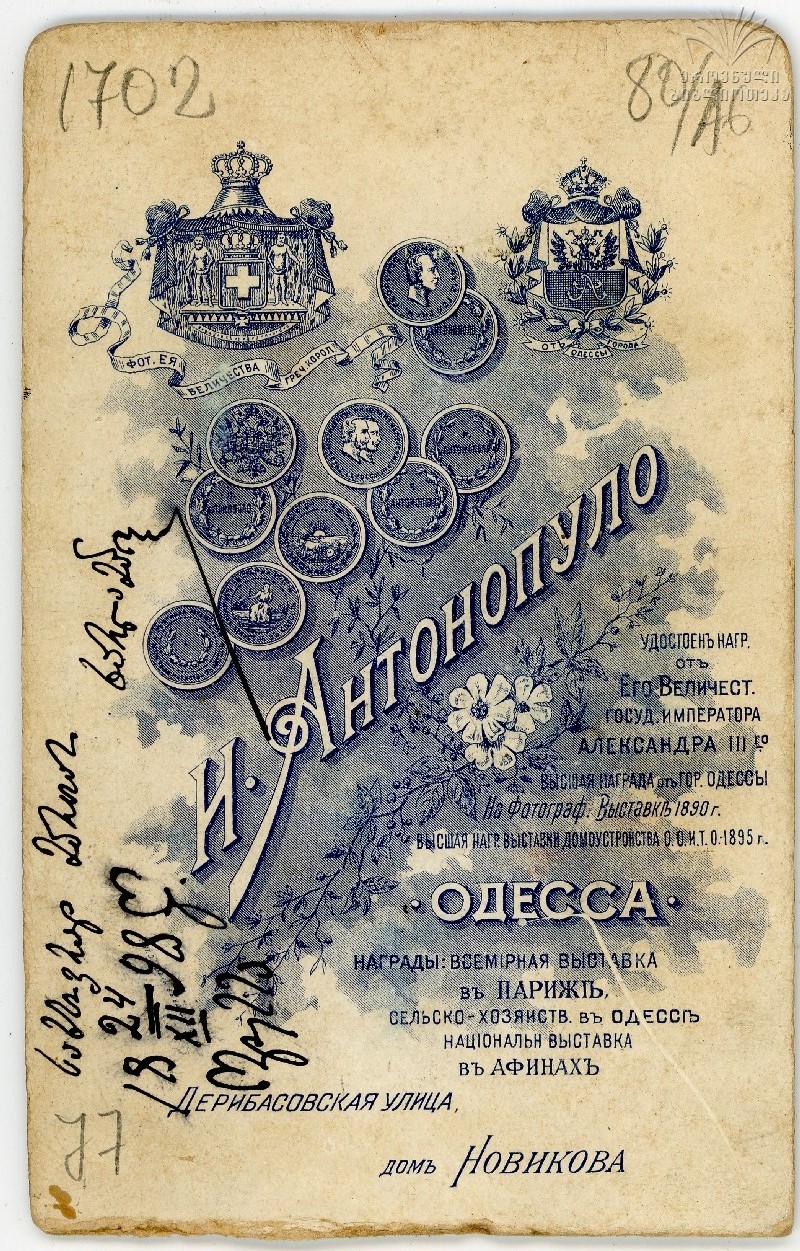 1702
ეროვნული
ბიბლიოთეკა
ФОТ. ЕЯ
ВЕЛИЧЕСТВА
ГРЕЧ. КОРОЛ
ОТЪ ГОРОДА
ОДЕССЫ
И. АНТОНОПУЛО
УДОСТОЕНЪ НАГР.
ОТЪ
ЕГО ВЕЛИЧЕСТ.
ГОСУД. ИМПЕРАТОРА
АЛЕКСАНДРА III ГО
ВЫСШАЯ НАГРАДА отъ ГОР. ОДЕССЫ
На Фотограф. Выставкѣ 1890 г.
ВЫСШАЯ НАГР. ВЫСТАВКИ ДОМОУСТРОЙСТВА О. О. И. Т. О. 1895 г.
· ОДЕССА ·
НАГРАДЫ: ВСЕМІРНАЯ ВЫСТАВКА
ВЪ ПАРИЖѢ,
СЕЛЬСКО-ХОЗЯЙСТВ. ВЪ ОДЕССѢ
НАЦІОНАЛЬН ВЫСТАВКА
ВЪ АѲИНАХЪ
ДЕРИБАСОВСКАЯ УЛИЦА,
ДОМЪ НОВИКОВА
18 24/XII 98
77